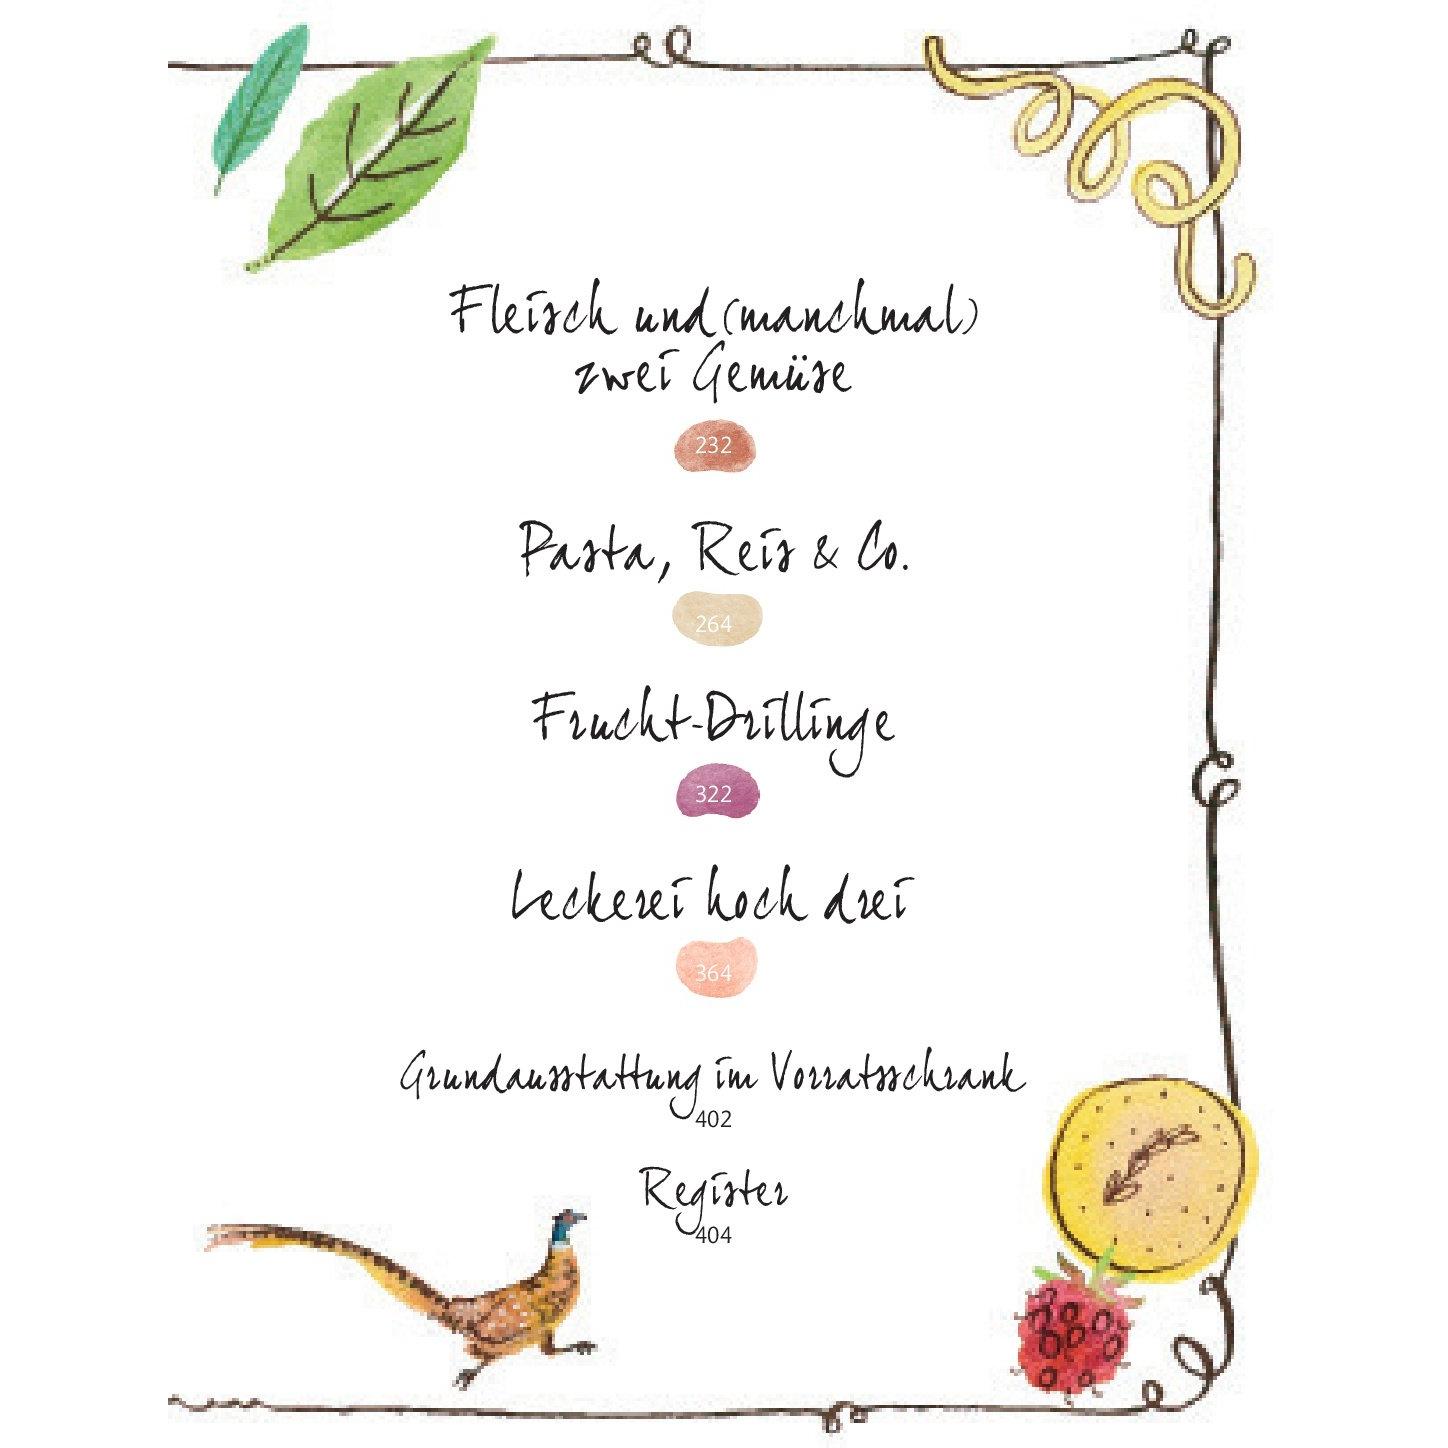 Fleisch und (manchmal)
zwei Gemüse
232
Pasta, Reis & Co.
264
Frucht-Drillinge
322
Leckerei hoch drei
364
Grundausstattung im Vorratsschrank
402
Register
404